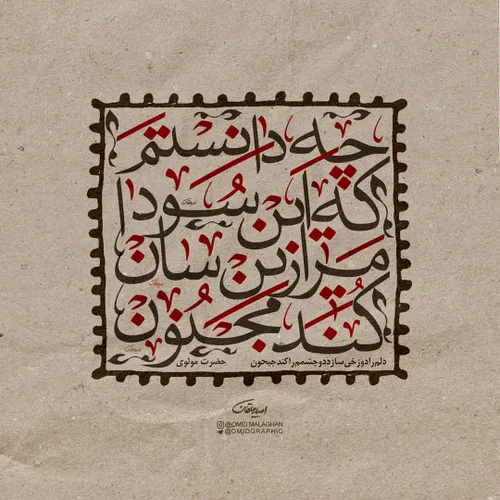 چه دانستم
که این سودا
مرا زین سان
کند مجنون
دلم را دوزخی سازد دو چشمم را کند جیحون
حضرت مولوی
امید ملاقان
@OMID.MALAGHAN
@OMIDGRAPHIC